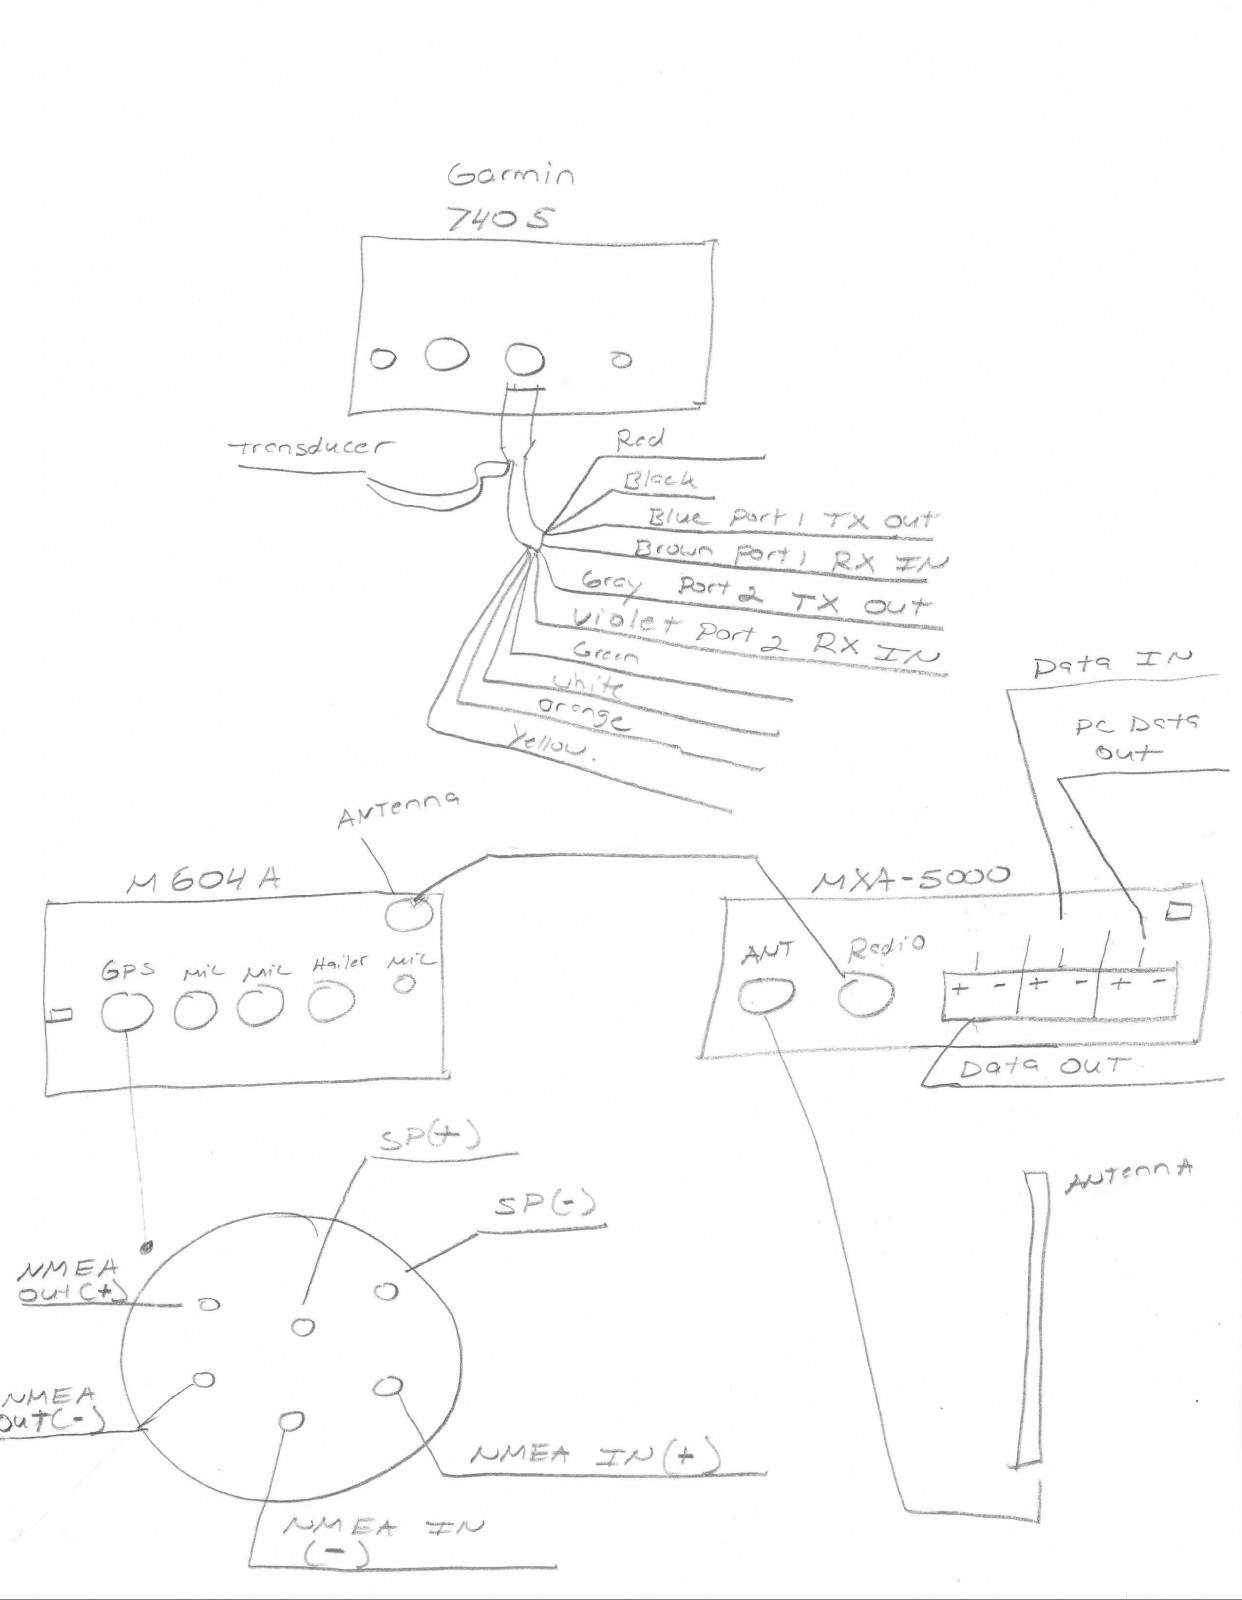 Garmin
740S
Transducer
Red
Black
Blue Port 1 TX Out
Brown Port 1 RX IN
Gray Port 2 TX Out
Violet Port 2 RX IN
Green
White
Orange
Yellow.
Data IN
PC Data
Out
Antenna
M604A
GPS Mic Mic Hailer Mic
MXA-5000
ANT Radio
+ - + - + -
Data OUT
SP(+)
SP(-)
NMEA
Out(+)
NMEA
Out(-)
NMEA IN(+)
NMEA IN
(-)
ANTennA